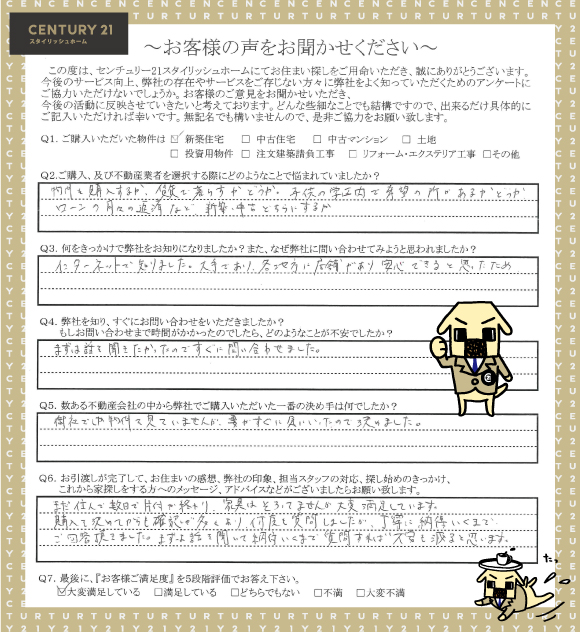 CENTURY 21
スタイリッシュホーム
～お客様の声をお聞かせください～
この度は、センチュリー21スタイリッシュホームにてお住まい探しをご用命いただき、誠にありがとうございます。
今後のサービス向上、弊社の存在やサービスをご存じない方々に弊社をよく知っていただくためのアンケートに
ご協力いただけないでしょうか。お客様のご意見をお聞かせいただき、
今後の活動に反映させていきたいと考えております。どんな些細なことでも結構ですので、出来るだけ具体的に
ご記入いただければ幸いです。無記名でも構いませんので、是非ご協力をお願い致します。
Q1. ご購入いただいた物件は ☑ 新築住宅 □ 中古住宅 □ 中古マンション □ 土地
□ 投資用物件 □ 注文建築請負工事 □ リフォーム・エクステリア工事 □その他
Q2.ご購入、及び不動産業者を選択する際にどのようなことで悩まれていましたか?
物件を購入するか、賃貸で暮らすかどうか。子供の学区内で希望の所があるかどうか
ローンの月々の返済など 新築・中古どちらにするか
Q3. 何をきっかけで弊社をお知りになりましたか?また、なぜ弊社に問い合わせてみようと思われましたか?
インターネットで知りました。大手であり、各地方に店舗があり安心できると思ったため
Q4. 弊社を知り、すぐにお問い合わせをいただきましたか?
もしお問い合わせまで時間がかかったのでしたら、どのようなことが不安でしたか?
まずは話を聞きたかったのですぐに問い合わせました。
Q5. 数ある不動産会社の中から弊社でご購入いただいた一番の決め手は何でしたか?
他社では物件を見ていませんが、妻がすぐに気にいったので決めました。
Q6. お引渡しが完了して、お住まいの感想、弊社の印象、担当スタッフの対応、探し始めのきっかけ、
これから家探しをする方へのメッセージ、アドバイスなどがございましたらお願い致します。
まだ住んで数日で片付が終わり、家具はそろってませんが大変満足しています。
購入を決めてからも確認が多くあり、何度も質問しましたが、丁寧に納得いくまで
ご回答頂きました。まずは話を聞いて納得いくまで質問すれば不安も減ると思います。
Q7. 最後に、『お客様ご満足度』を5段階評価でお答え下さい。
☑大変満足している □満足している □どちらでもない □不満 □大変不満
たっ